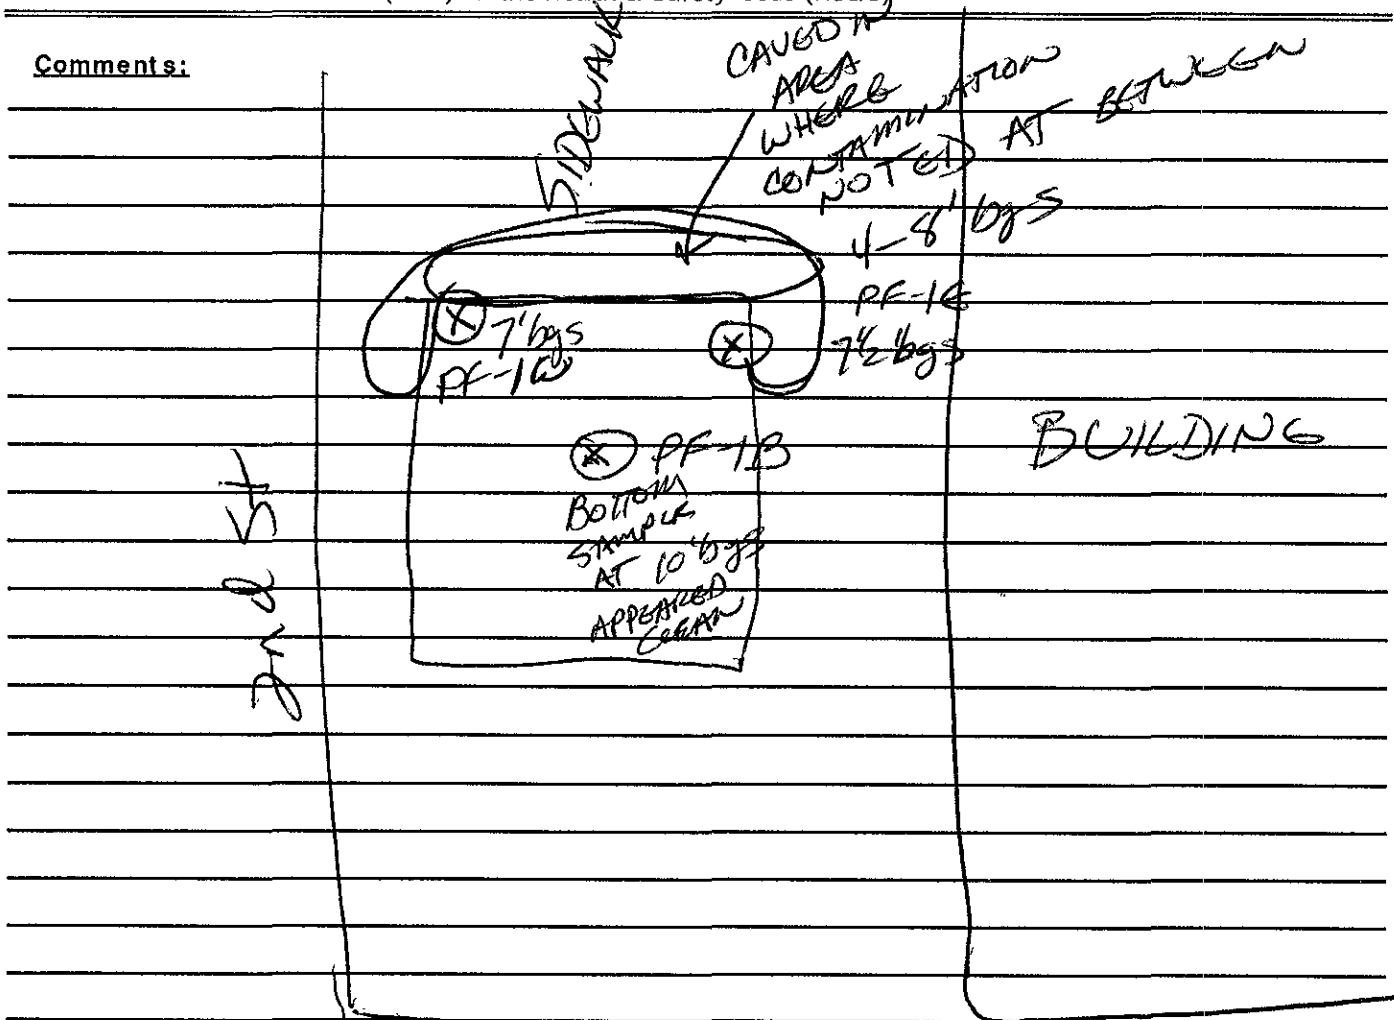 Comments:
SIDEWALK
CAVED IN
AREA
WHERE
CONTAMINATION
NOTED AT BETWEEN
4-8' bgs
PF-1E
7½' bgs
7' bgs
PF-1W
PF-1B
BOTTOM
SAMPLE
AT 10' bgs
APPEARED
CLEAN
BUILDING
2nd St